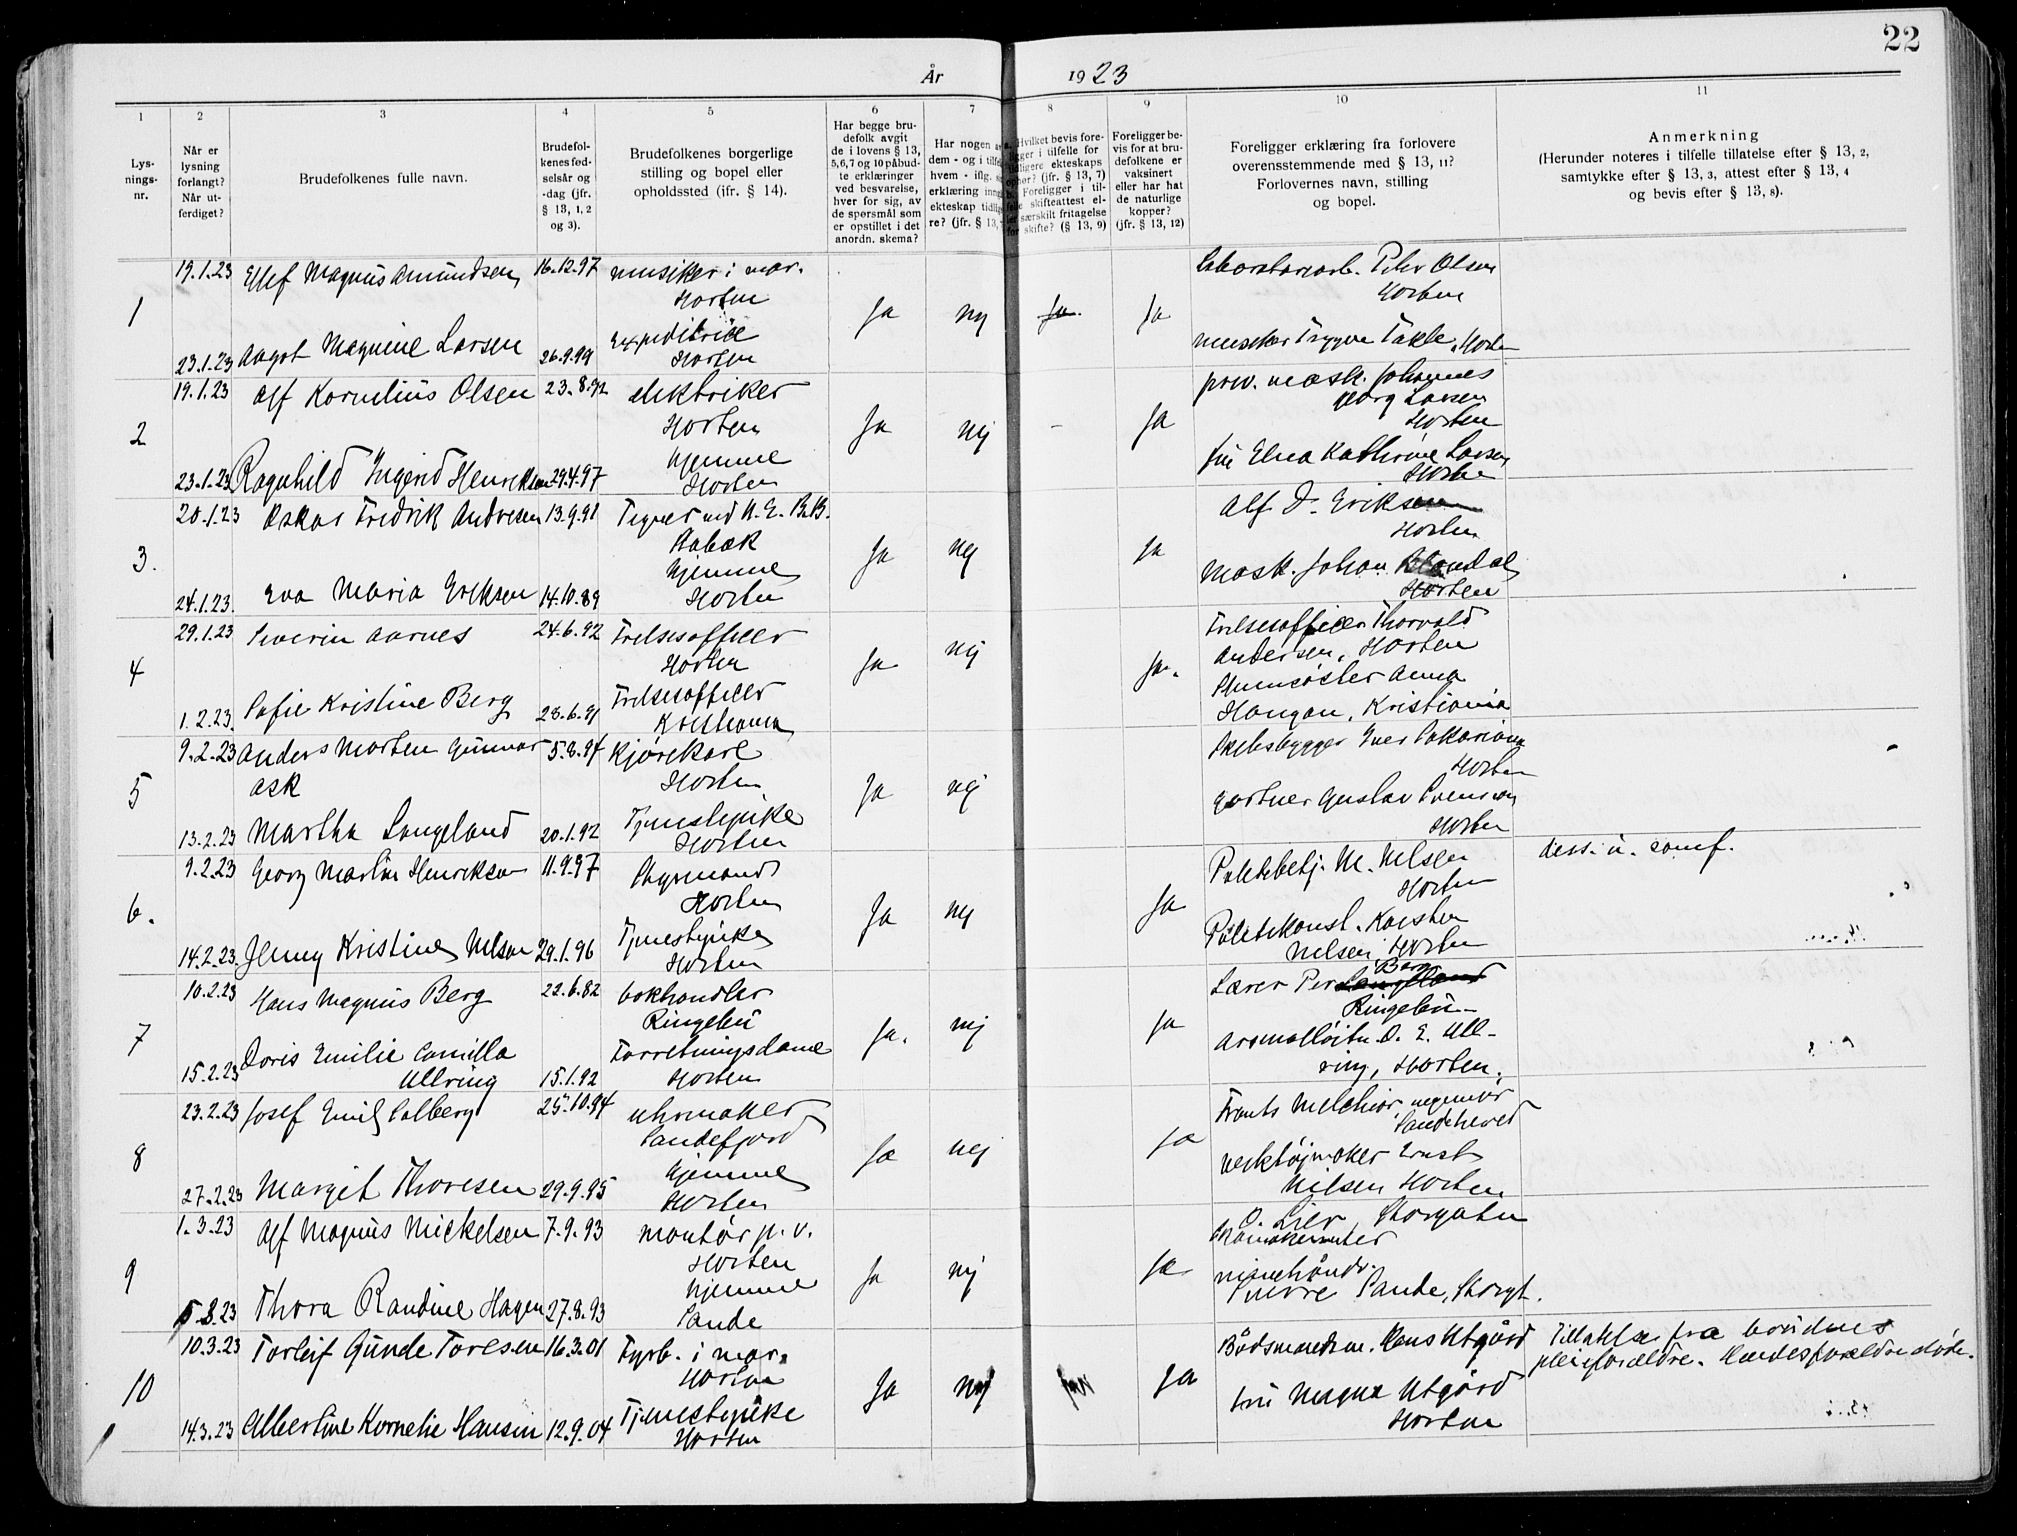 22
År 1923
1
Lys-
nings-
nr.
2
Når er
lysning
forlangt?
Når ut-
ferdiget?
3
Brudefolkenes fulle navn.
4
Brudefol-
kenes fød-
selsår og
-dag (jfr.
§ 13, 1, 2
og 3).
5
Brudefolkenes borgerlige
stilling og bopel eller
opholdssted (ifr. § 14).
6
Har begge bru-
defolk avgit
de i lovens § 13,
5,6,7 og 10 påbud-
te erklæringer
ved besvarelse,
hver for sig, av
de spørsmål som
er opstillet i det
anordn. skema?
7
Har nogen av
dem - og i tilfelle
hvem - iflg.
erklæring inng
ekteskap tidlige
re? (jfr. § 13,
8
Hvilket bevis fore-
ligger i tilfelle for
tidligere ekteskaps
ophør? (jfr. § 13, 7)
b. Foreligger i til-
felle skifteattest el-
ler særskilt fritagelse
for skifte? (§ 13, 9)
9
Foreligger be-
vis for at bru-
defolkene er
vaksinert
eller har hat
de naturlige
kopper?
(jfr. § 13, 12)
10
Foreligger erklæring fra forlovere
overensstemmende med § 13, 11?
Forlovernes navn, stilling
og bopel.
11
Anmerkning
(Herunder noteres i tilfelle tillatelse efter § 13, 2,
samtykke efter § 13, 3, attest efter § 13, 4
og bevis efter § 13, 8).
1
19.1.23 Ellef Magnus Amundsen 16.12.97 musiker i mar.
Horten
Ja nej Ja
Peter Olsen
Horten
23.1.23 Aagot Magnine Larsen 26.9.99 Expeditrice
Horten
musiker Trygve Takle, Horten
2
19.1.23 Alf Kornelius Olsen 23.8.92 elektriker
Horten
Ja nej - Ja
Johannes
Georg Larsen
Horten
23.1.23 Ragnhild Ingerid Henriksen 29.4.97 hjemme
Horten
fru Elna Kathrine Larsen
Horten
3.
20.1.23 Oskar Fredrik Andresen 13.9.91 Tegner ved N. E. B.B.
hjemme
Ja nej Ja
Alf D. Eriksen
Horten
24.1.23. Eva Maria Eriksen 14.10.89 Horten
Mask. Johan
Horten
4
29.1.23 Severin Aarnes 24.6.92 Frelsesofficer
Horten
Ja nej Ja.
Frelsesofficer Thorvald
Andersen, Horten
1.2.23. Sofie Kristine Berg 28.6.91 Frelsesofficer
Kristiania
Anna
Haugan, Kristiania
5
9.2.23 Anders Morten Gunnar 5.8.94 kjørekarl
Ask
Horten
Ja nej
Horten
13.2.23 Martha Langeland 20.1.92 Tjenestepike
Horten
gartner Gustav Svensson
Horten
6.
9.2.23 Georg Martin Henriksen 11.9.97 Styrmand
Horten
Ja nej Ja
Politibetj. M. Nilsen
Horten
diss. u. samf.
14.2.23. Jenny Kristine Nilsen 29.1.96 Tjenestepike
Horten
Politikonst. Karsten
Nilsen, Horten
7
10.2.23 Hans Magnus Berg 22.6.82 bokhandler
Ringebu
Ja. nej Ja
Lærer Per Berg
Ringebu
15.2.23 Doris Emilie Camilla
Ullring 15.1.92 Forretningsdame
Horten
O. E. Ull-
ring, Horten.
8
23.2.23 Josef Emil Salberg 25.10.94 uhrmaker
Sandefjord
Ja nej Ja
Frants Melchior, ingeniør
Sandeherred
27.2.23 Margit Thoresen 29.9.95 hjemme
Horten
verktøjmaker Ernst
Nilsen Horten
9
1.3.23 Alf Magnus Mickelsen 7.9.93 montør p. v.
Horten
Ja nej Ja
O. Lier, Storgaten
skomakermester
5.3.23 Thora Randine Hagen 27.8.93 hjemme
Sande
Sverre Sande, Storgt.
10
10.3.23 Torleif Gunde Toresen 16.3.01 Fyrb. i mar.
Horten
Ja nej Ja
Hans Utgård
Tillatelse fra brudens
pleieforældre. døde.
14.3.23 Albertine Kornelie Hansen 12.9.04 Tjenestepike
Horten
fru Magna Utgård
Horten